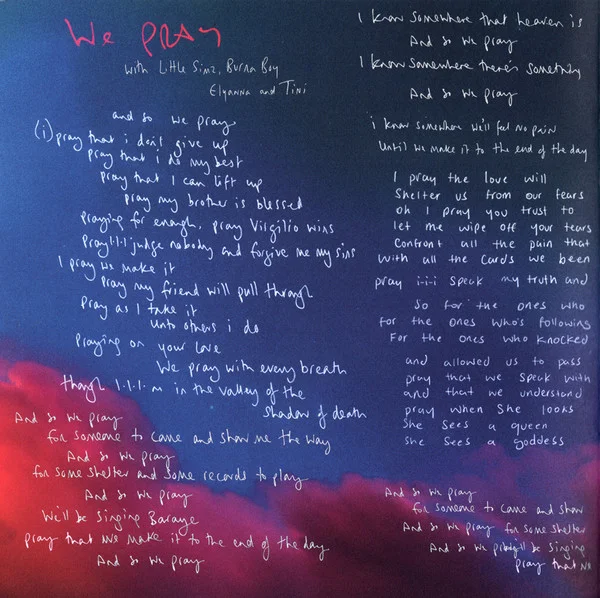 We PRAY
with Little Simz, Burna Boy
Elyanna and Tini
and so we pray
(i) pray that i don't give up
pray that i do my best
pray that I can lift up
pray my brother is blessed
Praying for enough, pray Virgilio wins
Pray I-I-I judge nobody and forgive me my sins
I pray we make it
Pray my friend will pull through
Pray as I take it
Unto others i do
Praying on your love
We pray with every breath
though I-I-I-m in the valley of the
Shadow of death
And so we pray
for someone to come and show me the way
And so we pray
for some shelter and some records to play
And so we pray
We'll be singing Baraye
pray that we make it to the end of the day
And so we pray
I know somewhere that heaven is
And so we pray
I know somewhere there's something
And so we pray
i know somewhere we'll feel no pain
Until we make it to the end of the day
I pray the love will
Shelter us from our fears
oh I pray you trust to
let me wipe off your tears
Confront all the pain that
with all the cards we been
pray i-i-i speak my truth and
So for the ones who
for the ones who's following
For the ones who knocked
and allowed us to pass
pray that we speak with
and that we understand
pray when She looks
She sees a queen
she sees a goddess
And so we pray
for someone to come and show
And so we pray for some shelter
And so we be singing
pray that we